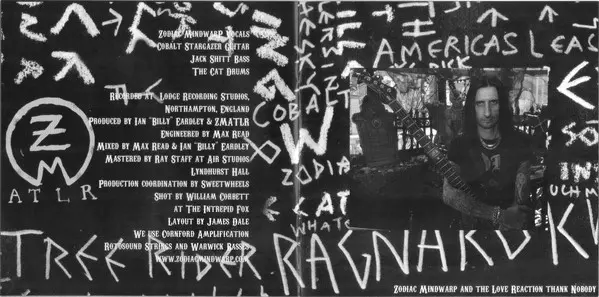 Zodiac Mindwarp Vocals
Cobalt Stargazer Guitar
Jack Shitt Bass
The Cat Drums
Recorded at Lodge Recording Studios,
Northampton, England
Produced by Ian "Billy" Eardley & ZMATLR
Engineered by Max Read
Mixed by Max Read & Ian "Billy" Eardley
Mastered by Ray Staff at Air Studios
Lyndhurst Hall
Production coordination by Sweetwheels
Shot by William Corbett
at The Intrepid Fox
Layout by James Dale
We use Cornford Amplification
Rotosound Strings and Warwick Basses
www.zodiacmindwarp.com
Z
M
ATLR
TREE RIDER RAGNAROK
AMERICAS LEAS
COBALT
W
ZODIA
CAT
WHATS
E
SO
IN
UCH M
Zodiac Mindwarp and the Love Reaction thank Nobody